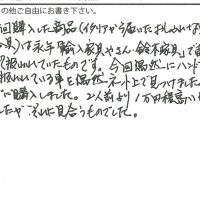 の他ご自由にお書き下さい。
回購入した商品(イタリアから届いたおしゃれな
家具)は永年輸入家具やさん・鈴木家具」で
扱われていたものです。今回偶然にハンド
扱われている事を偶然ネット上で見つけました。
に購入しました。2人前より1万円程高い
したが、それに見合うものでした。